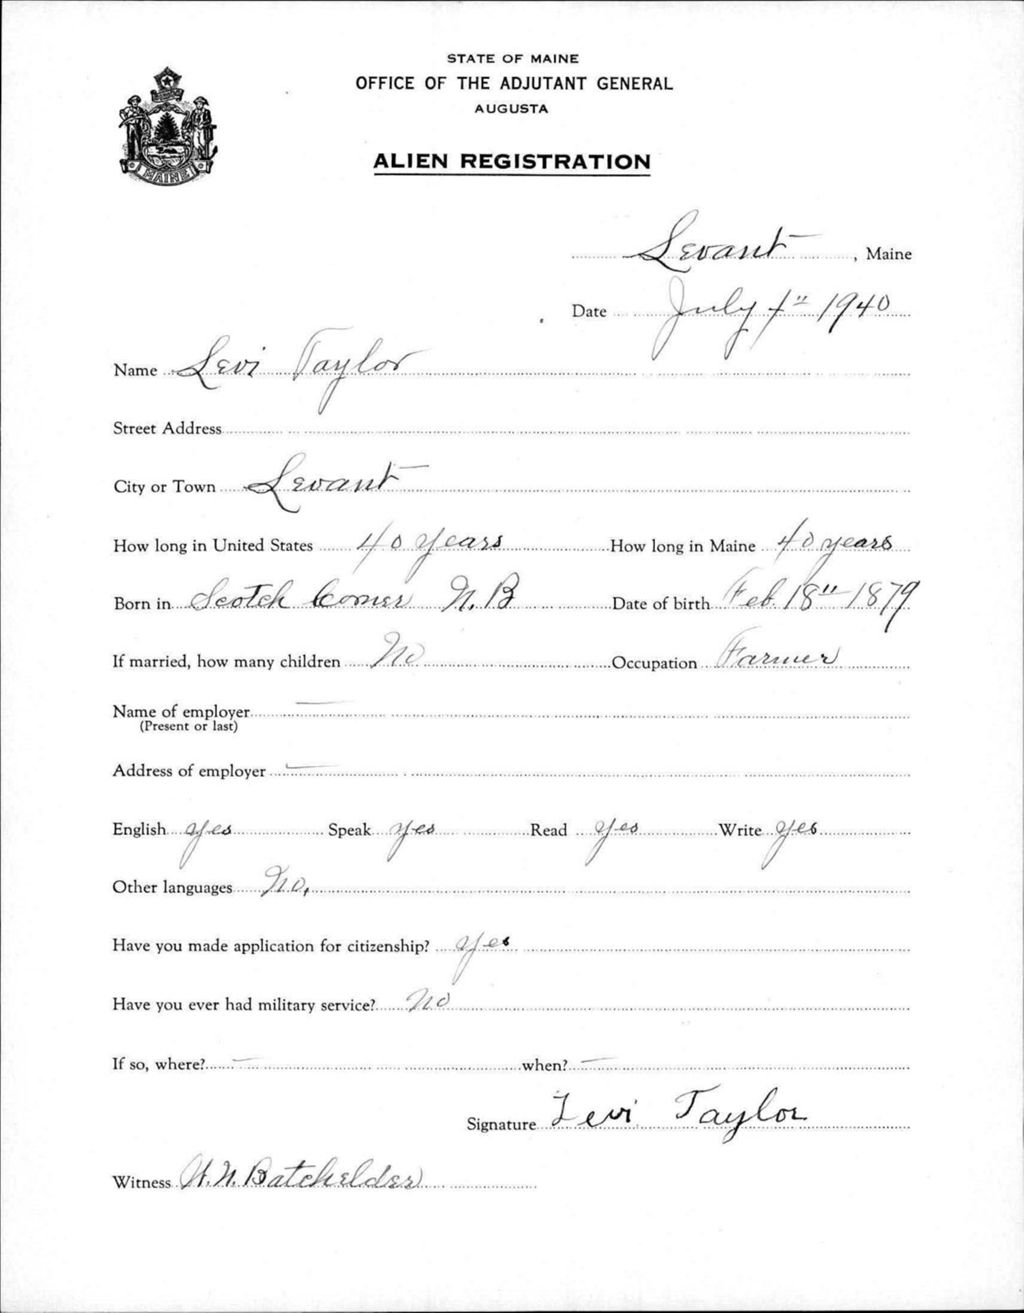 STATE OF MAINE
OFFICE OF THE ADJUTANT GENERAL
AUGUSTA
ALIEN REGISTRATION
MAINE
Levant, Maine
Date July 1" 1940
Name Levi Taylor
Street Address
City or Town Levant
How long in United States 40 years How long in Maine 40 years
Born in Scotch Corner N.B Date of birth Feb. 18" 1879
If married, how many children No Occupation Farmer
Name of employer —
(Present or last)
Address of employer —
English yes Speak yes Read yes Write yes
Other languages No,
Have you made application for citizenship? yes
Have you ever had military service? no
If so, where? — when? —
Signature Levi Taylor
Witness N. Batchelder